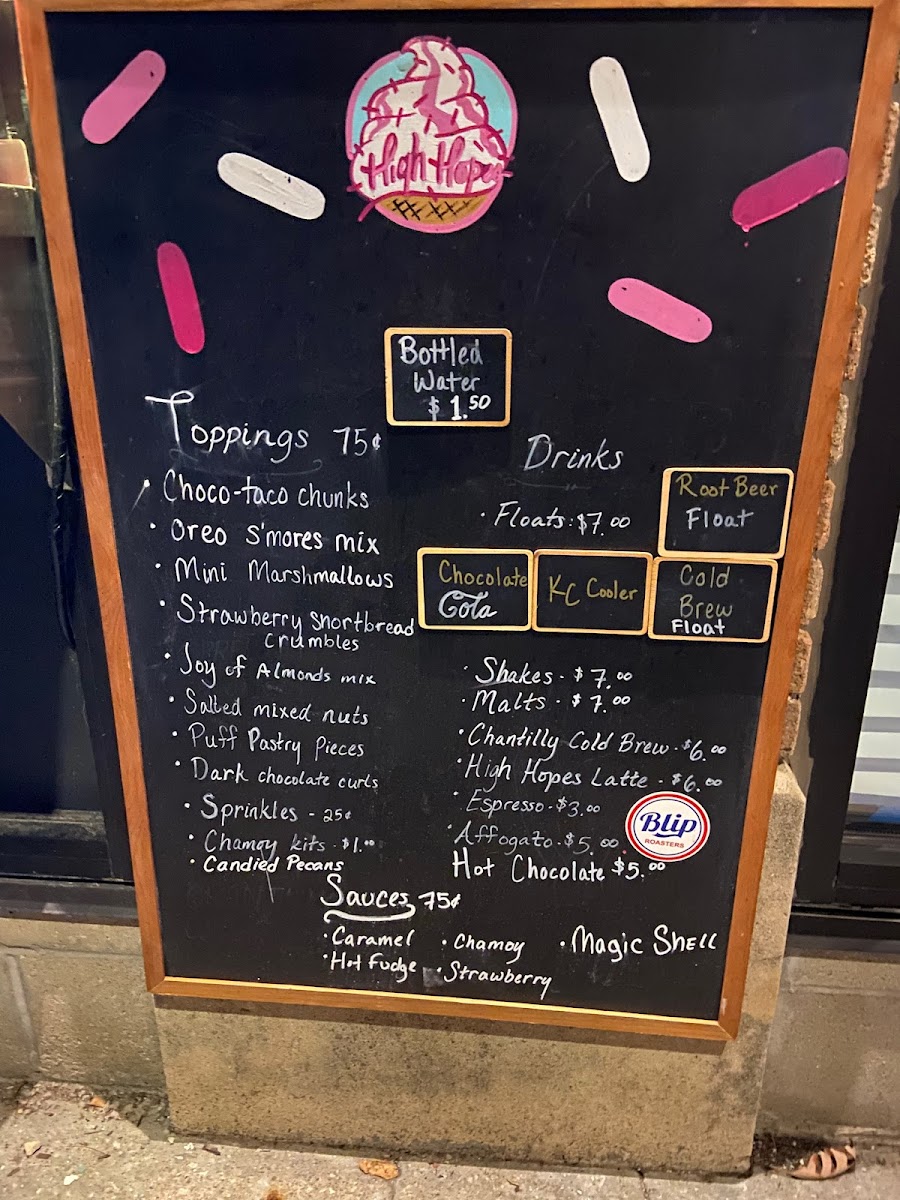 High Hopes
Bottled
Water
$1.50
Toppings 75¢
• Choco-taco chunks
• Oreo S'mores mix
• Mini Marshmallows
• Strawberry Shortbread
crumbles
• Joy of Almonds mix
• Salted mixed nuts
• Puff Pastry Pieces
• Dark chocolate curls
• Sprinkles - 25¢
• Chamoy kits - $1.00
• Candied Pecans
Drinks
• Floats: $7.00
Root Beer
Float
Chocolate
Cola
KC Cooler
Cold
Brew
Float
• Shakes - $7.00
• Malts - $7.00
• Chantilly Cold Brew - $6.00
• High Hopes Latte - $6.00
• Espresso - $3.00
• Affogato - $5.00
Hot Chocolate $5.00
Blip
ROASTERS
Sauces 75¢
• Caramel
• Hot Fudge
• Chamoy
• Strawberry
• Magic Shell